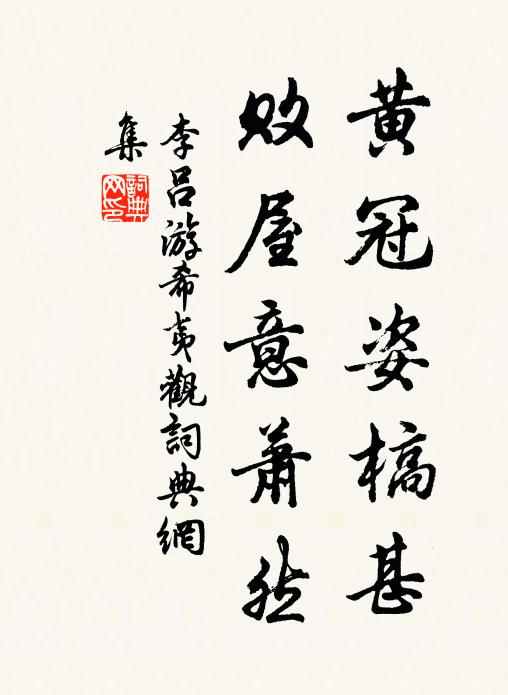 黃冠姿槁甚
敗屋意蕭然
李呂游希夷觀詞典網
集
詞典網印